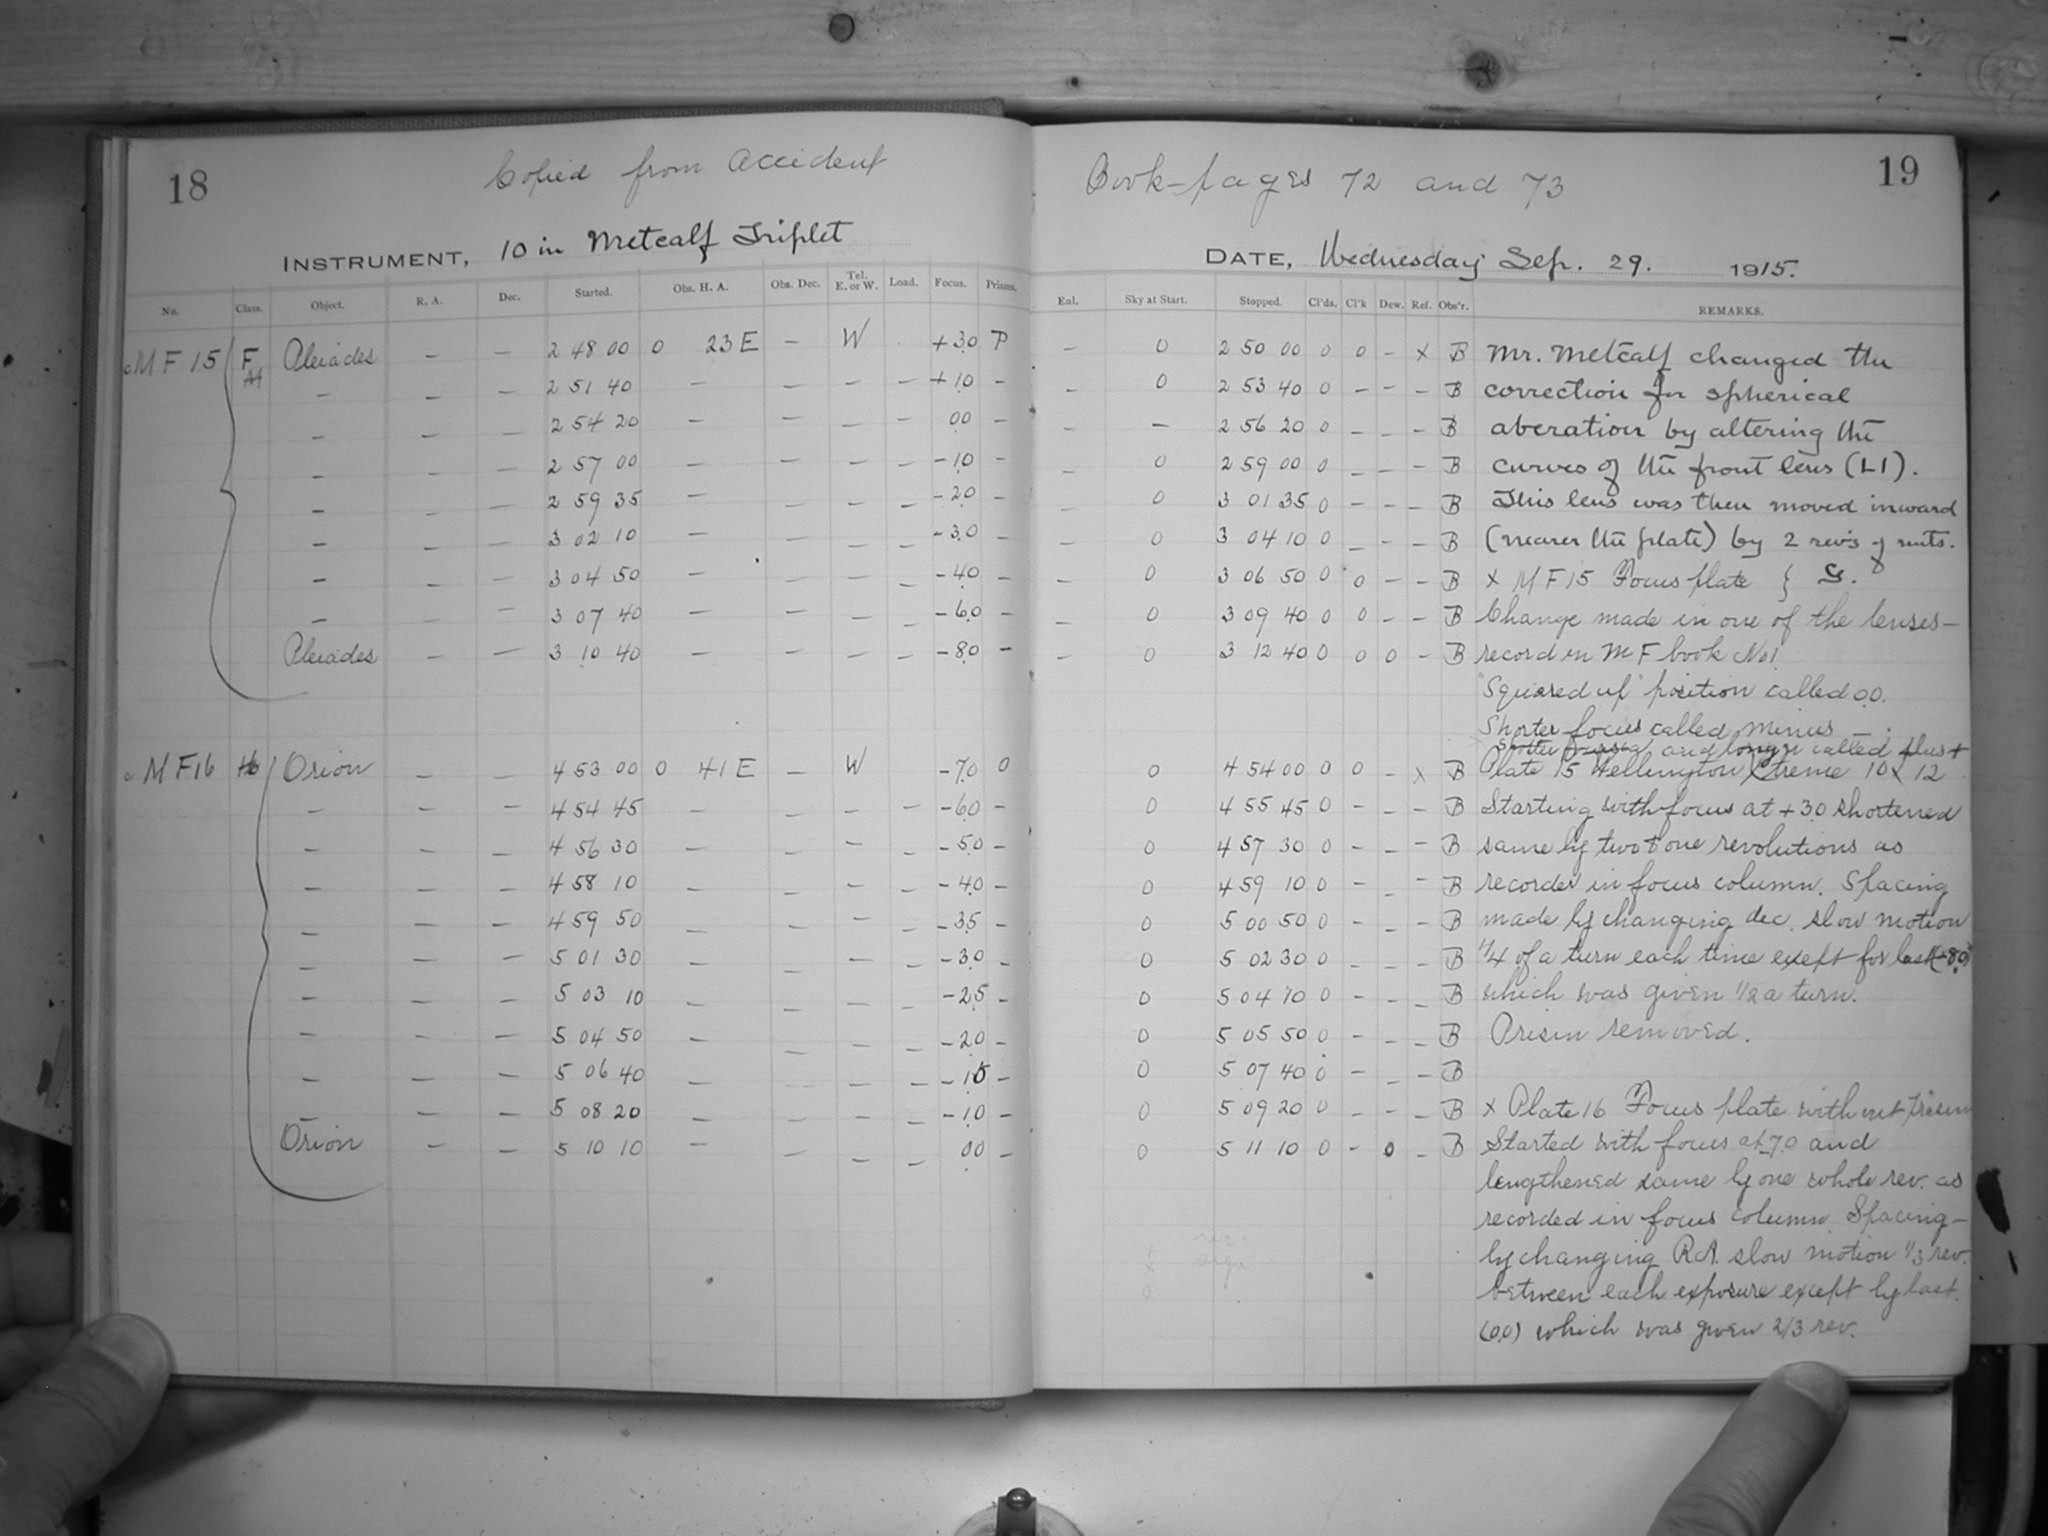 18
Copied from Accident
INSTRUMENT, 10 in Metcalf Triplet
No. Class. Object. R. A. Dec. Started. Obs. H. A. Obs. Dec. Tel. E. or W. Load. Focus. Prisms.
MF15 F Pleiades — — 2 48 00 0 23 E — W +3.0 P
A4
— — — 2 51 40 — — — — +1.0 —
— — — 2 54 20 — — — — 0.0 —
— — — 2 57 00 — — — — -1.0 —
— — — 2 59 35 — — — — -2.0 —
— — — 3 02 10 — — — — -3.0 —
— — — 3 04 50 — — — — -4.0 —
— — — 3 07 40 — — — — -6.0 —
Pleiades — — 3 10 40 — — — — -8.0 —
MF16 Orion — — 4 53 00 0 41 E — W -7.0 0
— — — 4 54 45 — — — — -6.0 —
— — — 4 56 30 — — — — -5.0 —
— — — 4 58 10 — — — — -4.0 —
— — — 4 59 50 — — — — -3.5 —
— — — 5 01 30 — — — — -3.0 —
— — — 5 03 10 — — — — -2.5 —
— — — 5 04 50 — — — — -2.0 —
— — — 5 06 40 — — — — -1.5 —
— — — 5 08 20 — — — — -1.0 —
Orion — — 5 10 10 — — — — 0.0 —
19
Book-pages 72 and 73
DATE, Wednesday Sep. 29. 1915.
Enl. Sky at Start. Stopped. Cl'ds. Cl'k Dew. Ref. Obs'r. REMARKS.
— 0 2 50 00 0 0 — x B Mr. Metcalf changed the
— 0 2 53 40 0 — — — B correction for spherical
— — 2 56 20 0 — — — B aberation by altering the
— 0 2 59 00 0 — — — B curves of the front lens (L1).
— 0 3 01 35 0 — — — B This lens was then moved inward
— 0 3 04 10 0 — — — B (nearer the plate) by 2 rev's of nuts.
— 0 3 06 50 0 0 — — B x MF15 Focus plate }
— 0 3 09 40 0 0 — — B Change made in one of the lenses—
— 0 3 12 40 0 0 0 — B record in MF book No1.
"Squared up" position called 0.0.
Shorter focus called minus
and longer called plus +
0 4 54 00 0 0 — x B Plate 15 Wellington Xtreme 10 x 12
0 4 55 45 0 — — — B Starting with focus at +3.0 shortened
0 4 57 30 0 — — — B same by two & one revolutions as
0 4 59 10 0 — — — B recorder in focus column. Spacing
0 5 00 50 0 — — — B made by changing dec. slow motion
0 5 02 30 0 — — — B 1/4 of a turn each time exept for last (-8.0)
0 5 04 10 0 — — — B which was given 1/2 a turn.
0 5 05 50 0 — — — B Prism removed.
0 5 07 40 0 — — — B
0 5 09 20 0 — — — B x Plate 16 Focus plate without prism
0 5 11 10 0 — 0 — B Started with focus at -7.0 and
lengthened same by one whole rev. as
recorded in focus column. Spacing—
by changing R.A. slow motion 1/3 rev.
between each exposure except by last.
(0.0) which was given 2/3 rev.